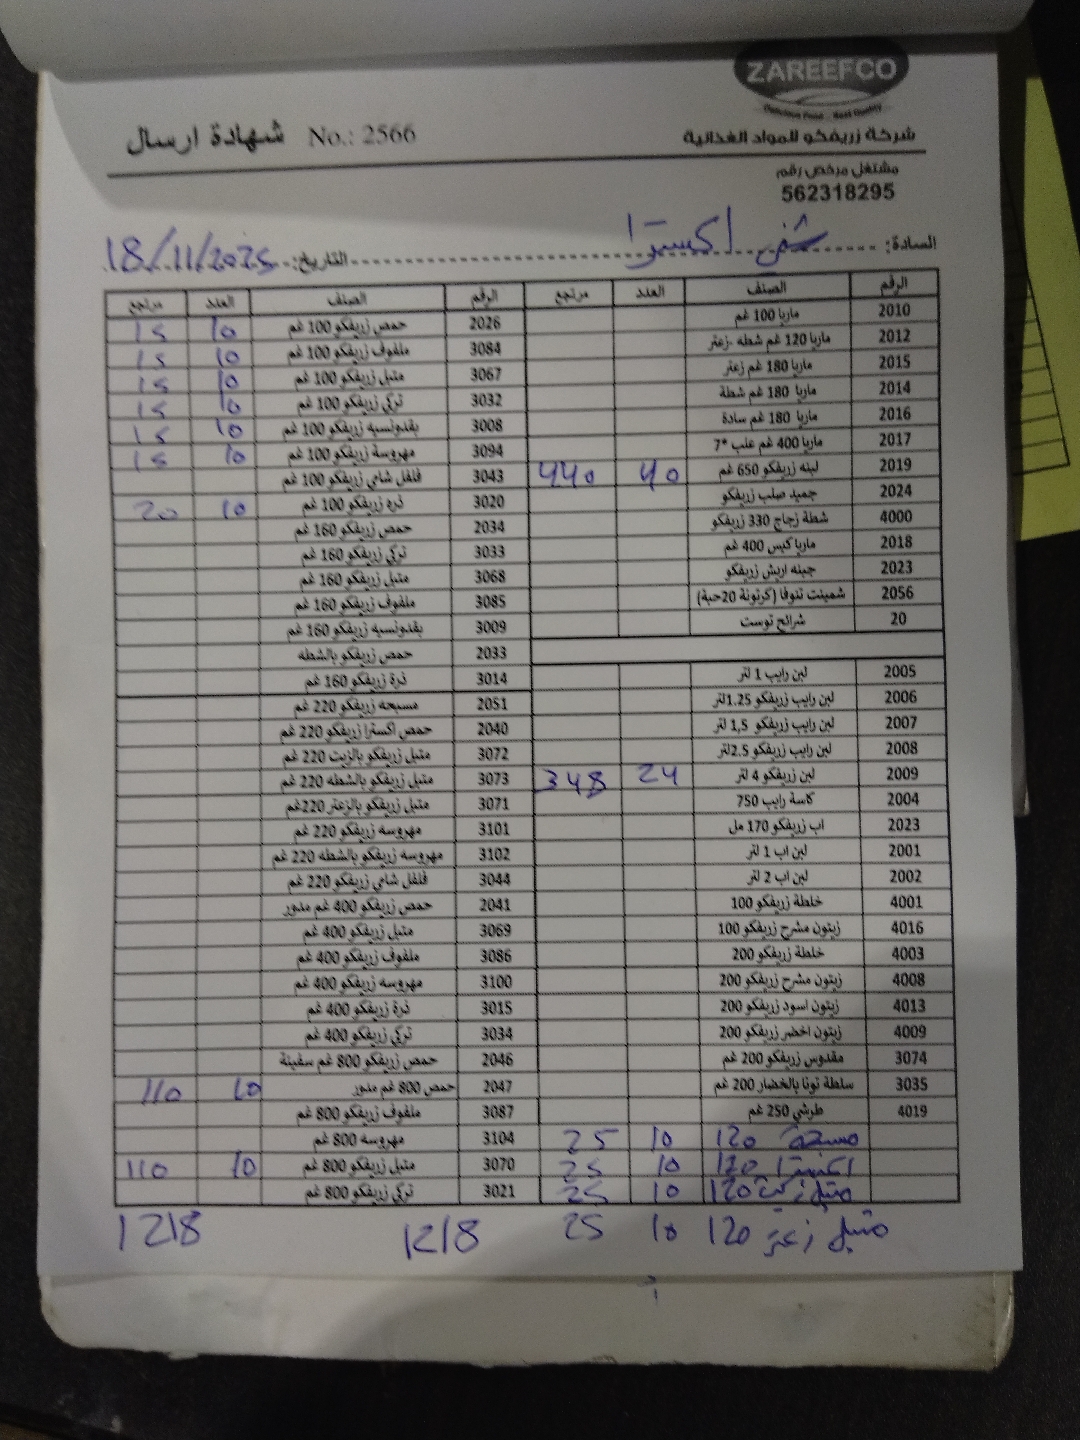 ZAREEFCO
Delicious Food .. Best Quality
شركة زريفكو للمواد الغذائية
شهادة ارسال No.: 2566
مشتغل مرخص رقم
562318295
السادة: اكسترا التاريخ: 18/11/2025
الرقم الصنف العدد مرتجع الرقم الصنف العدد مرتجع
2010 ماريا 100 غم 2026 حمص زريفكو 100 غم 10 15
2012 ماريا 120 غم شطه -زعتر 3084 ملفوف زريفكو 100 غم 10 15
2015 ماريا 180 غم زعتر 3067 متبل زريفكو 100 غم 10 15
2014 ماريا 180 غم شطة 3032 تركي زريفكو 100 غم 10 15
2016 ماريا 180 غم سادة 3008 بقدونسيه زريفكو 100 غم 10 15
2017 ماريا 400 غم علب *7 3094 مهروسة زريفكو 100 غم 10 15
2019 لبنه زريفكو 650 غم 40 440 3043 فلفل شامي زريفكو 100 غم
2024 جميد صلب زريفكو 3020 ذره زريفكو 100 غم 10 20
4000 شطة زجاج 330 زريفكو 2034 حمص زريفكو 160 غم
2018 ماريا كيس 400 غم 3033 تركي زريفكو 160 غم
2023 جبنه اريش زريفكو 3068 متبل زريفكو 160 غم
2056 شمينت تنوفا (كرتونة 20حبة) 3085 ملفوف زريفكو 160 غم
20 شرائح توست 3009 بقدونسيه زريفكو 160 غم
2033 حمص زريفكو بالشطه
2005 لبن رايب 1 لتر 3014 ذرة زريفكو 160 غم
2006 لبن رايب زريفكو 1.25لتر 2051 مسبحه زريفكو 220 غم
2007 لبن رايب زريفكو 1,5 لتر 2040 حمص اكسترا زريفكو 220 غم
2008 لبن رايب زريفكو 2.5لتر 3072 متبل زريفكو بالزيت 220 غم
2009 لبن زريفكو 4 لتر 24 348 3073 متبل زريفكو بالشطه 220 غم
2004 كاسة رايب 750 3071 متبل زريفكو بالزعتر 220غم
2023 اب زريفكو 170 مل 3101 مهروسه زريفكو 220 غم
2001 لبن اب 1 لتر 3102 مهروسه زريفكو بالشطه 220 غم
2002 لبن اب 2 لتر 3044 فلفل شامي زريفكو 220 غم
4001 خلطة زريفكو 100 2041 حمص زريفكو 400 غم مدور
4016 زيتون مشرح زريفكو 100 3069 متبل زريفكو 400 غم
4003 خلطة زريفكو 200 3086 ملفوف زريفكو 400 غم
4008 زيتون مشرح زريفكو 200 3100 مهروسه زريفكو 400 غم
4013 زيتون اسود زريفكو 200 3015 ذرة زريفكو 400 غم
4009 زيتون اخضر زريفكو 200 3034 تركي زريفكو 400 غم
3074 مقدوس زريفكو 200 غم 2046 حمص زريفكو 800 غم سفينة
3035 سلطة تونا بالخضار 200 غم 2047 حمص 800 غم مدور 10 110
4019 طرشي 250 غم 3087 ملفوف زريفكو 800 غم
مسبحة 120 10 25 3104 مهروسه 800 غم
اكسترا 120 10 25 3070 متبل زريفكو 800 غم 10 110
متبل زيت 120 10 25 3021 تركي زريفكو 800 غم
متبل زعتر 120 10 25 1218 1218